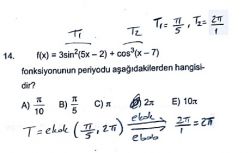 T₁ T₂ T₁ = π/5, T₂ = 2π/1
14. f(x) = 3sin²(5x – 2) + cos³(x – 7)
fonksiyonunun periyodu aşağıdakilerden hangisi-
dir?
A) π/10 B) π/5 C) π D) 2π E) 10π
T = ekok (π/5, 2π) ekok/ebob = 2π/1 = 2π